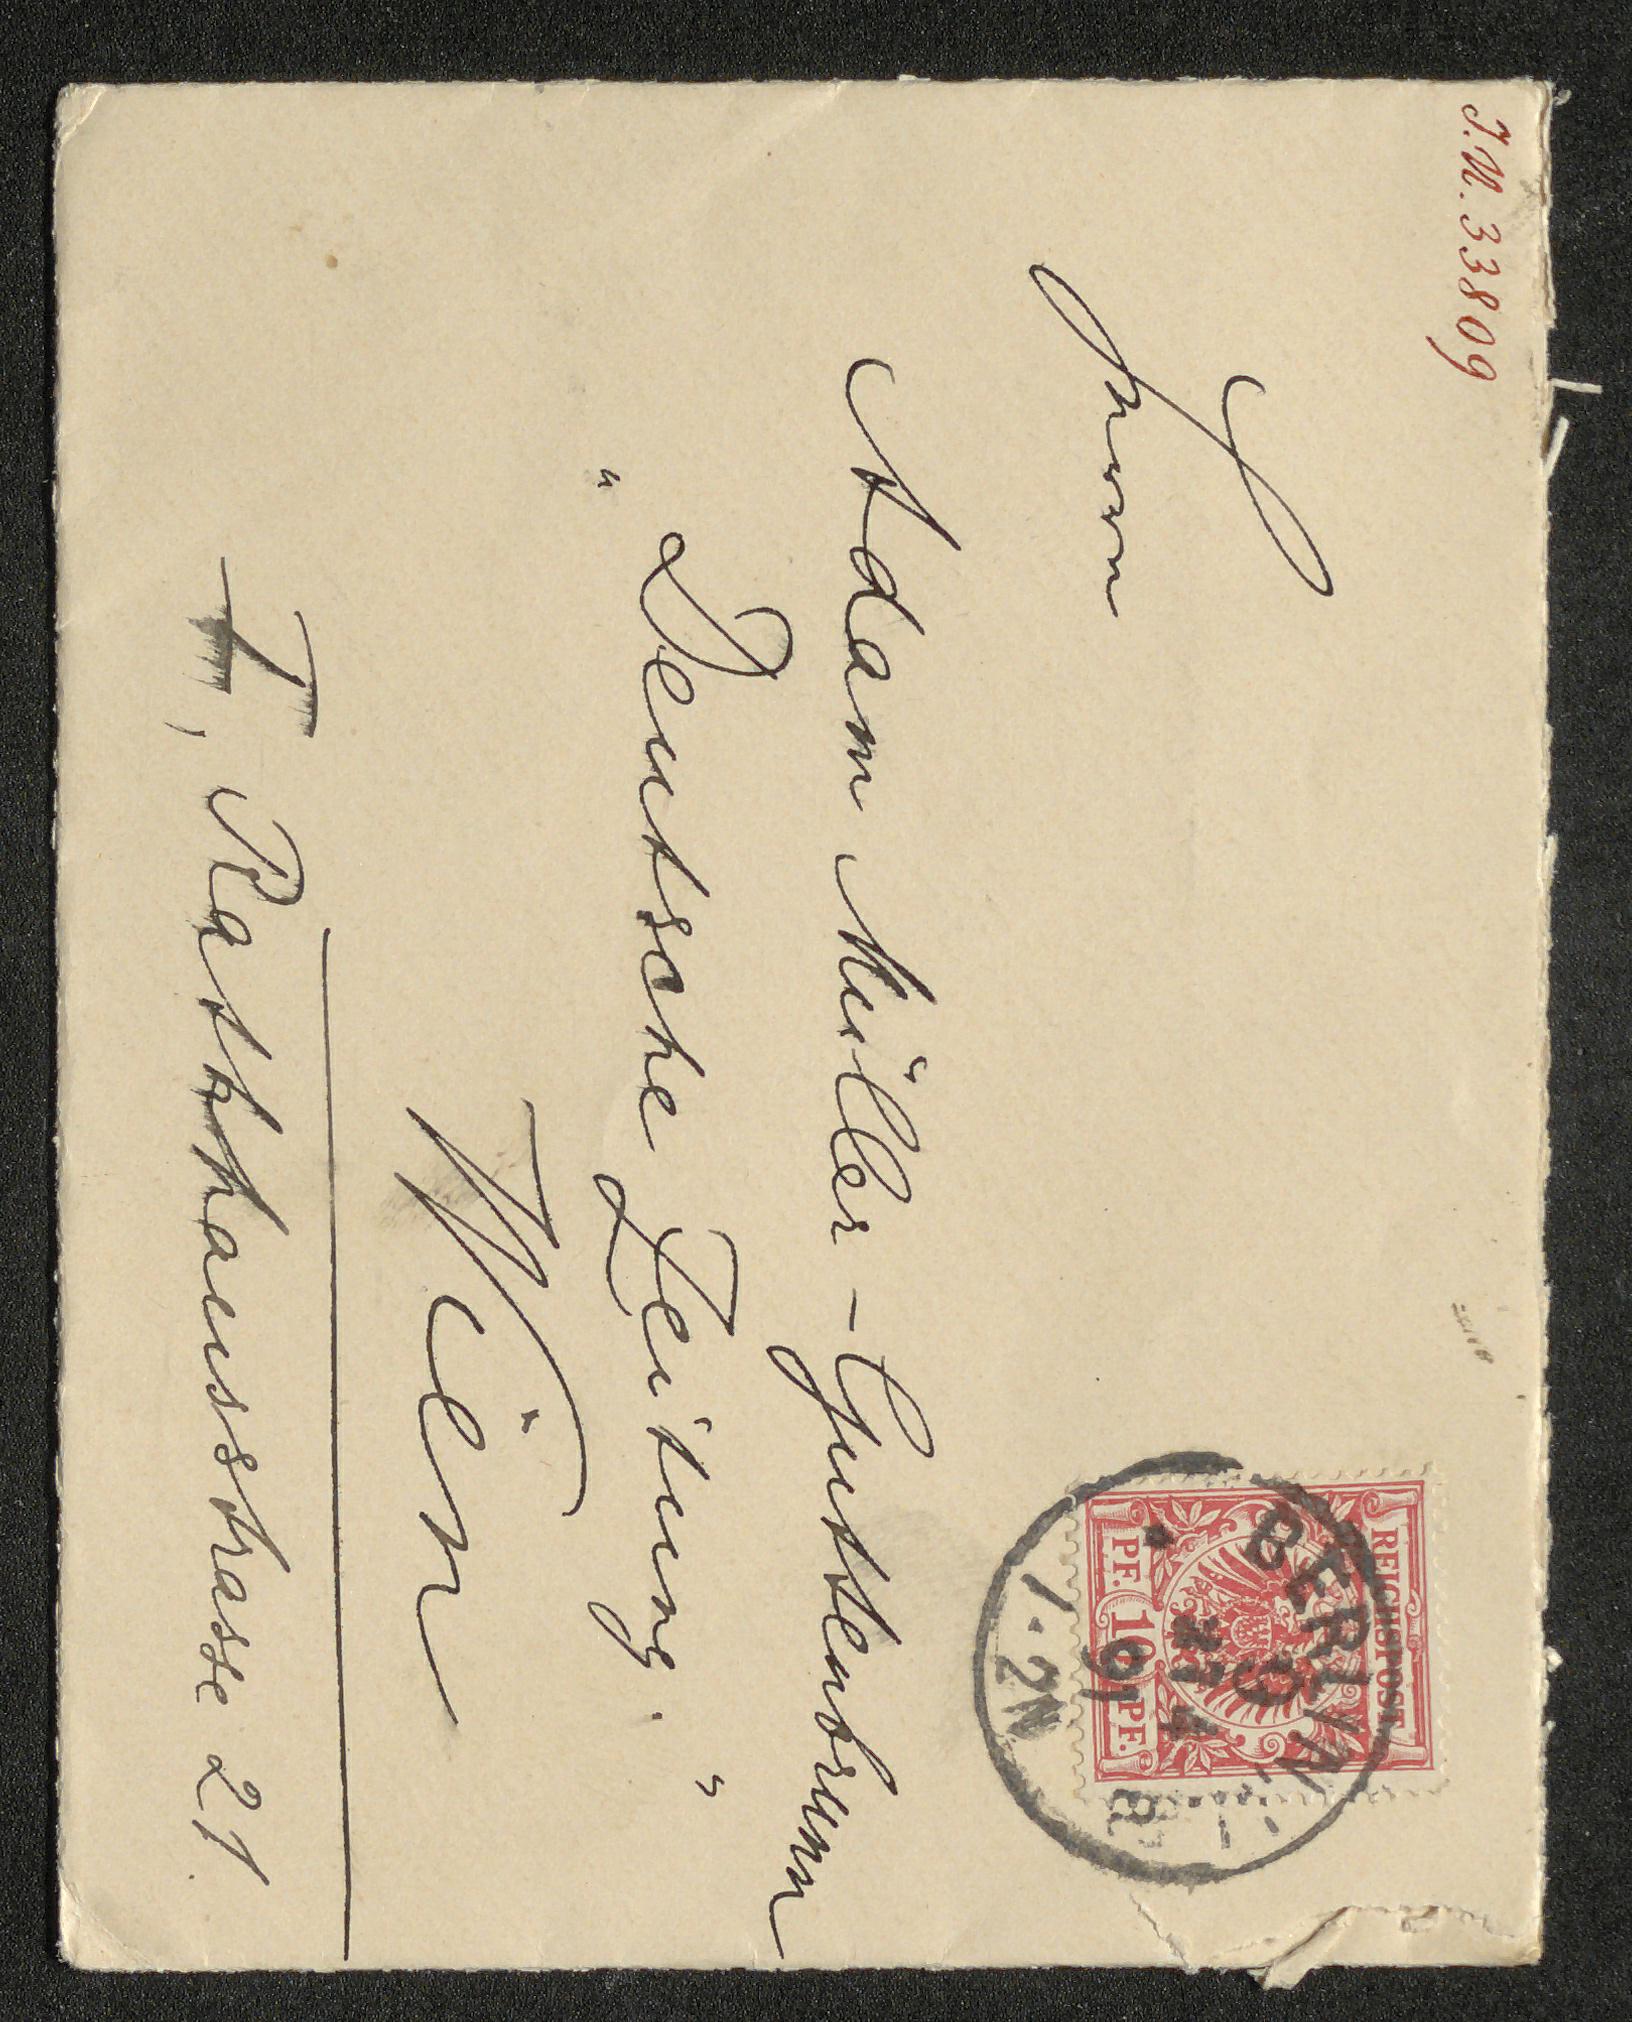 J.N. 33809
Herrn
Adam Müller-Guttenbrunn
"Deutsche Zeitung."
Wien
I, Rathhausstrasse 21.
REICHSPOST
PF. 10 PF.
BERLIN
91
1-2N